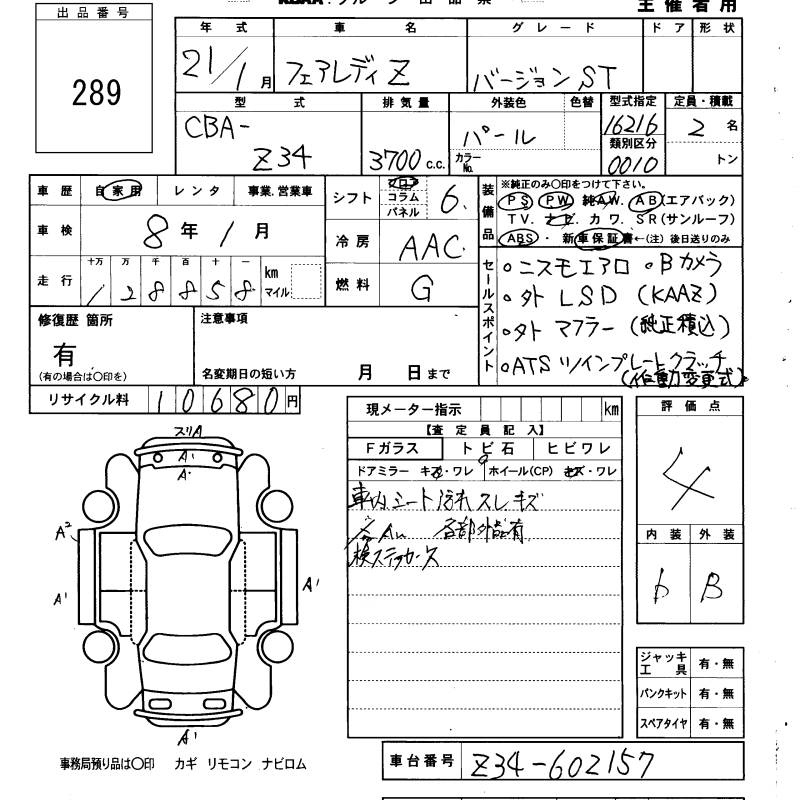 主催者用
出品番号
289
年式 車名 グレード ドア 形状
21/1月 フェアレディZ バージョンST
型式 排気量 外装色 色替 型式指定 定員・積載
CBA-
Z34 3700c.c. パール カラーNo. 16216 2名
類別区分
0010 トン
車歴 自家用 レンタ 事業.営業車
車検 8年1月
走行 十万 万 千 百 十 一
128858 km マイル
シフト フロア コラム パネル 6.
冷房 AAC
燃料 G
装備品 ※純正のみ○印をつけて下さい。
PS PW 純AW. AB(エアバッグ)
TV. ナビ カワ. SR(サンルーフ)
ABS・ 新車保証書←(注) 後日送りのみ
セールスポイント
○ニスモエアロ ○Bカメラ
○外LSD(KAAZ)
○外マフラー(純正積込)
○ATSツインプレートクラッチ
修復歴 箇所
有
(有の場合は○印を)
注意事項
名変期日の短い方 月 日まで
リサイクル料 10680円
現メーター指示 km
【査定員記入】
Fガラス トビ石 ヒビワレ
ドアミラー キズ・ワレ ホイール(CP) キズ・ワレ
車内シート汚れスレキズ
各部外品有
検ステッカー
評価点
4
内装 外装
b B
スリA
A'
A'
A²
A'
A'
A'
ジャッキ工具 有・無
パンクキット 有・無
スペアタイヤ 有・無
事務局預り品は○印 カギ リモコン ナビロム
車台番号 Z34-602157